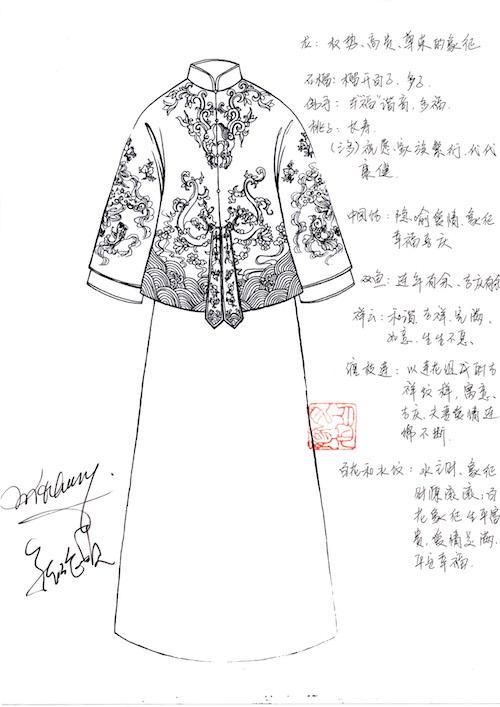 龙：权势、高贵、尊荣的象征
石榴：榴开百子、多子
佛手：与"福"谐音，多福.
桃子：长寿.
(三多) 祝愿家族繁衍，代代
康健.
中国结：隐喻爱情、象征
幸福与庆
双鱼：连年有余、吉庆有余
祥云：和谐、吉祥、完满、
如意、生生不息.
缠枝莲：以莲花组成的吉
祥纹样，寓意.
吉庆.夫妻爱情连
绵不断.
百花和水纹：水主财、象征
财源滚滚；百
花象征生平富
贵，爱情美满.
平安幸福.